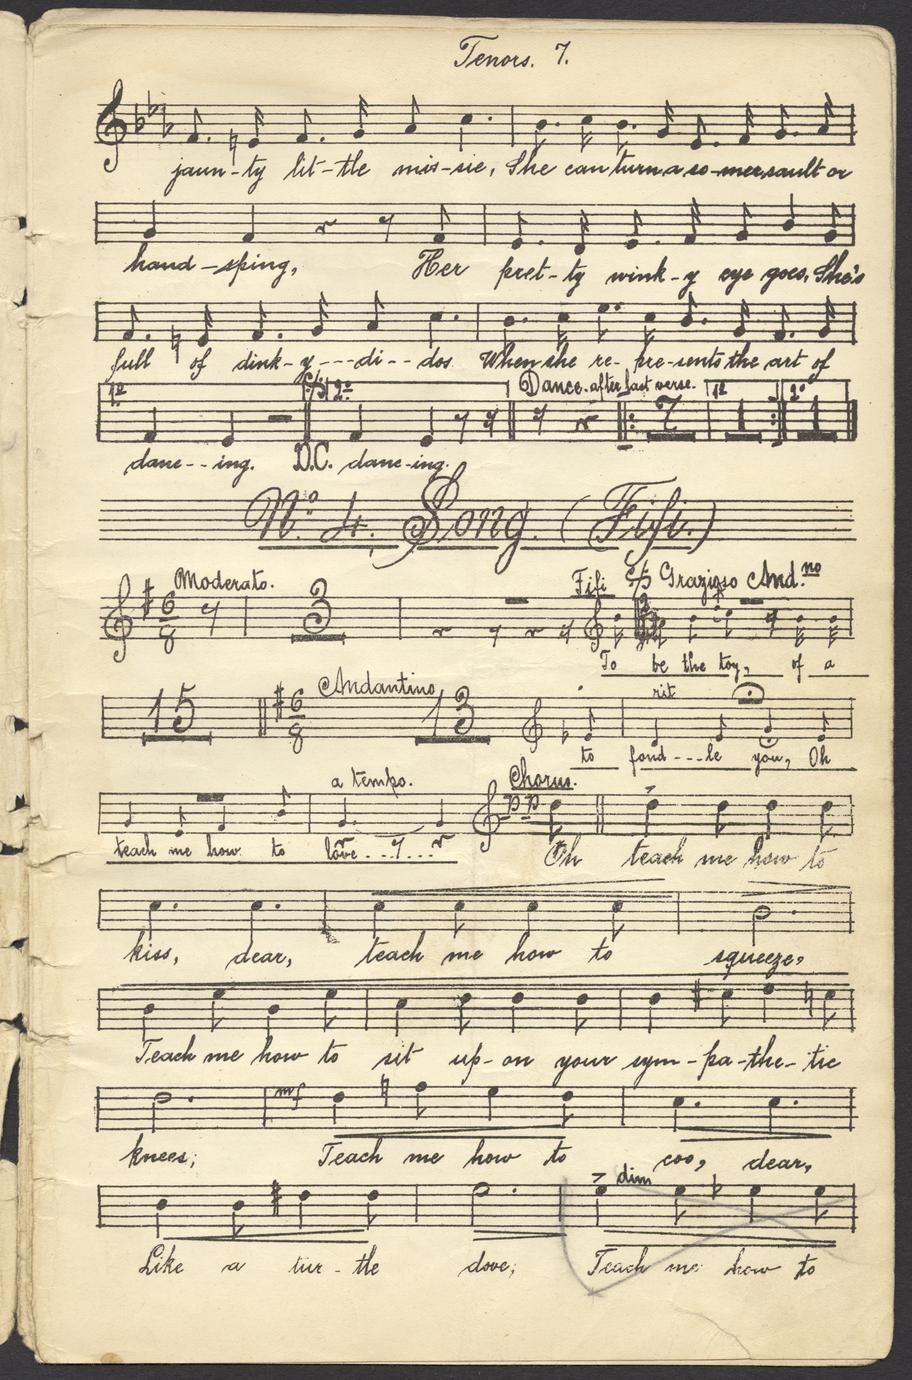 Tenors. 7.
jaun-ty lit-tle mis-sie, She can turn a so-mersault or
hand-sping, Her pret-ty wink-y eye goes, She's
full of dink-y---di--dos When she re-pre-sents the art of
1º 2º Dance after last verse. 7 1º 1 2º 1
danc--ing. D.C. danc-ing.
Nº 4. Song. (Fifi.)
Moderato. Fifi Grazioso And.no
6/8 3
To be the toy, of a
Andantino rit
15 6/8 13
to fond---le you, Oh
a tempo. Chorus.
pp
teach me how to love...... Oh teach me how to
kiss, dear, teach me how to squeeze,
Teach me how to sit up-on your sym-pa-the-tic
mf
knees; Teach me how to coo, dear,
dim
Like a tur-tle dove; Teach me how to